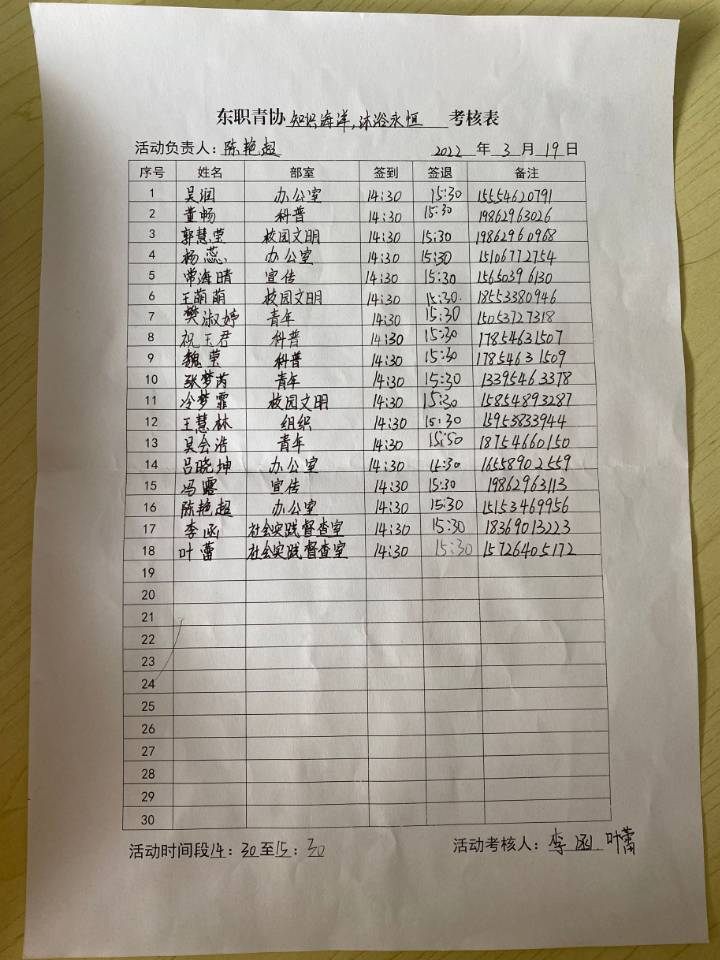 东职青协 知识海洋,沐浴永恒 考核表
活动负责人: 陈艳超 2022 年 3 月 19 日
序号 姓名 部室 签到 签退 备注
1 吴润 办公室 14:30 15:30 15554620791
2 董畅 科普 14:30 15:30 19862963026
3 郭慧莹 校园文明 14:30 15:30 19862960968
4 杨蕊 办公室 14:30 15:30 15106772754
5 常海晴 宣传 14:30 15:30 15650396130
6 王萌萌 校园文明 14:30 15:30 18553380946
7 樊淑婷 青年 14:30 15:30 15053727318
8 祝玉君 科普 14:30 15:30 17854631507
9 魏莹 科普 14:30 15:30 17854631509
10 张梦芮 青年 14:30 15:30 13395463378
11 冷梦霏 校园文明 14:30 15:30 15854893287
12 王慧林 组织 14:30 15:30 15953833944
13 吴会浩 青年 14:30 15:50 18754660150
14 吕晓坤 办公室 14:30 14:30 16558902559
15 冯露 宣传 14:30 15:30 19862963113
16 陈艳超 办公室 14:30 15:30 15153469956
17 李函 社会实践督查室 14:30 15:30 18369013223
18 叶蕾 社会实践督查室 14:30 15:30 15726405172
19
20
21
22
23
24
25
26
27
28
29
30
活动时间段14:30至15:30 活动考核人: 李函 叶蕾